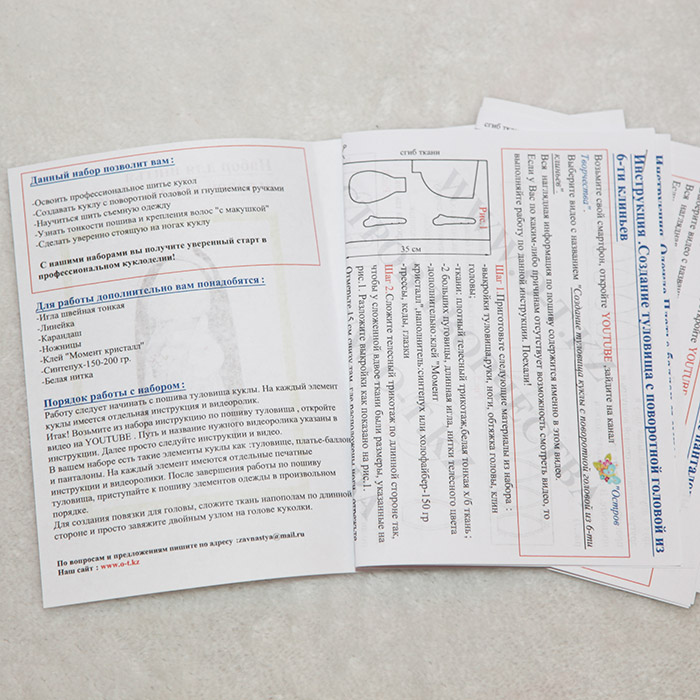 Данный набор позволит вам :
-Освоить профессиональное шитье кукол
-Создавать куклу с поворотной головой и гнущиемися ручками
-Научиться шить съемную одежду
-Узнать тонкости пошива и крепления волос "с макушкой"
-Сделать уверенно стоящую на ногах куклу
С нашими наборами вы получите уверенный старт в
профессиональном куклоделии!
Для работы дополнительно вам понадобятся :
-Игла швейная тонкая
-Линейка
-Карандаш
-Ножницы
-Клей "Момент кристалл"
-Синтепух-150-200 гр.
-Белая нитка
Порядок работы с набором :
Работу следует начинать с пошива туловища куклы. На каждый элемент
куклы имеется отдельная инструкция и видеоролик.
Итак! Возьмите из набора инструкцию по пошиву туловища , откройте
видео на YOUTUBE . Путь и название нужного видеоролика указаны в
инструкции. Далее просто следуйте инструкции и видео.
В вашем наборе есть такие элементы куклы как туловище, платье-баллон
и панталоны. На каждый элемент имеются отдельные печатные
инструкции и видеоролики. После завершения работы по пошиву
туловища, приступайте к пошиву элементов одежды в произвольном
порядке.
Для создания повязки для головы, сложите ткань напополам по длинной
стороне и просто завяжите двойным узлом на голове куколки.
По вопросам и предложениям пишите по адресу :zavnastya@mail.ru
Наш сайт : www.o-t.kz
Инструкция .Создание туловища с поворотной головой из
6-ти клиньев
Возьмите свой смартфон, откройте YOUTUBE ,зайдите на канал "Остров
Творчества".
Выберите видео с названием "Создание туловища куклы с поворотной головой из 6-ти
клиньев".
Вся наглядная информация по пошиву содержится именно в этом видео.
Если у Вас по каким-либо причинам отсутствует возможность смотреть видео, то
выполняйте работу по данной инструкции. Поехали!
Рис.1
сгиб ткани
35 см
Шаг 1.Приготовьте следующие материалы из набора :
-выкройки туловища,руки, ноги, обтяжка головы, клин
головы;
-ткани: плотный телесный трикотаж,белая тонкая х/б ткань ;
-2 больших пуговицы, длинная игла, нитки телесного цвета
-дополнительно:клей "Момент
кристалл",наполнитель:синтепух или холофайбер-150 гр
-трессы, кеды, глазки
Шаг 2.Сложите телесный трикотаж по длинной стороне так,
чтобы у сложенной вдвое ткани были размеры, указанные на
рис.1. Разложите выкройки как показано на рис.1.
сгиб ткани